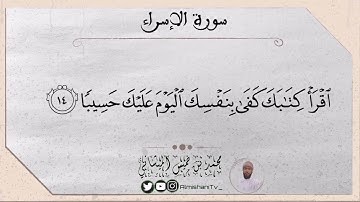 سورة الإسراء
ٱقْرَأْ كِتَٰبَكَ كَفَىٰ بِنَفْسِكَ ٱلْيَوْمَ عَلَيْكَ حَسِيبًا ١٤
محمد بن خميس الميشاني
AlmishaniTv_